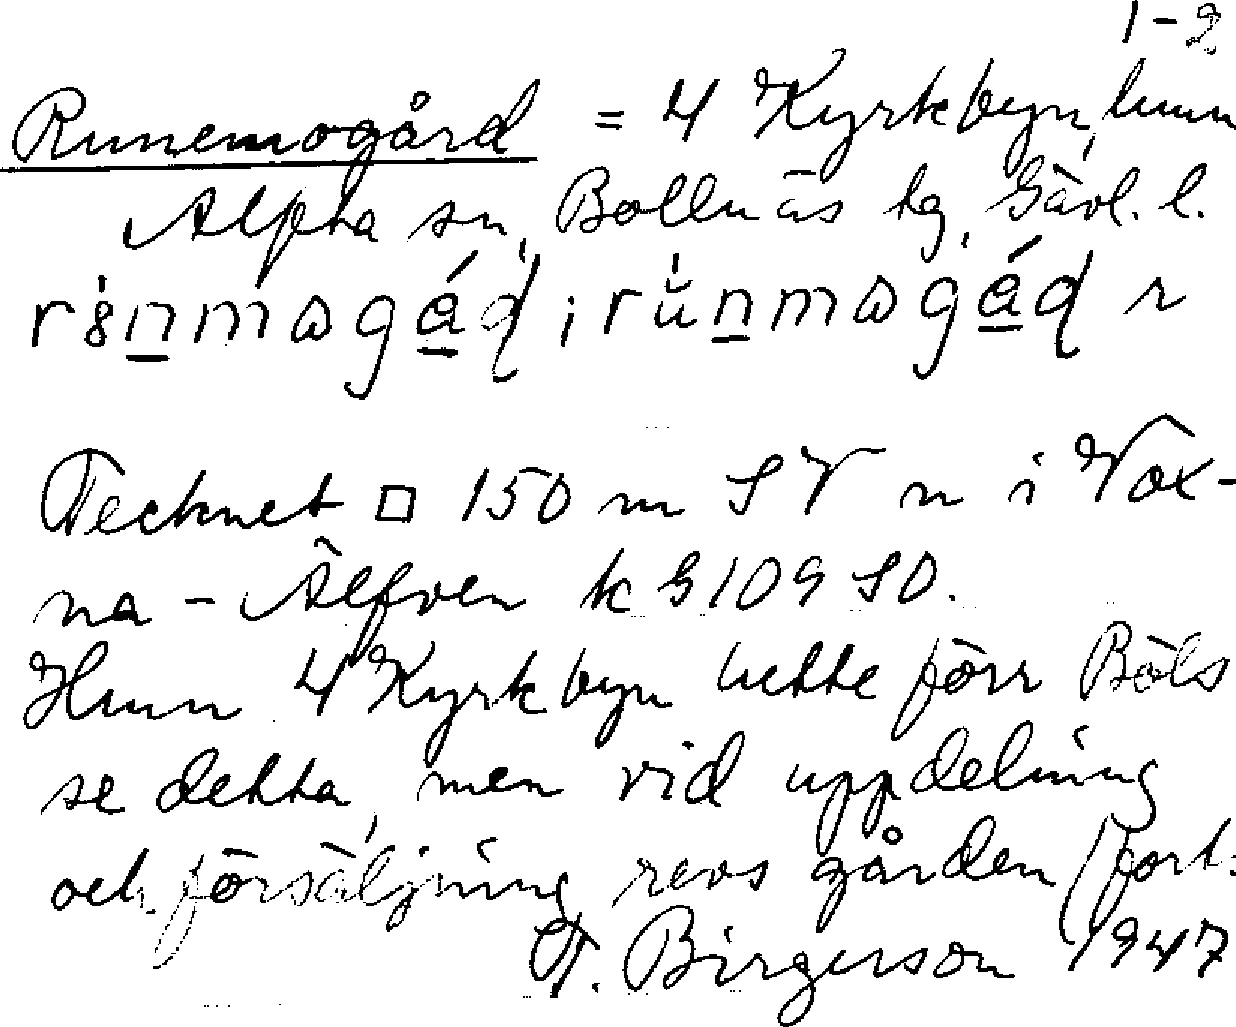 1-2
Runemogård = 4 Kyrkbyn, hmn
Alfta sn, Bollnäs tg, Gävl. l.
Tecknet □ 150 m SV n i Vox-
na-Älfven k G109 SO.
Hmn 4 Kyrkbyn hette förr Böls
se detta, men vid uppdelning
och försäljning revs gården (fort.
Birgerson 1947